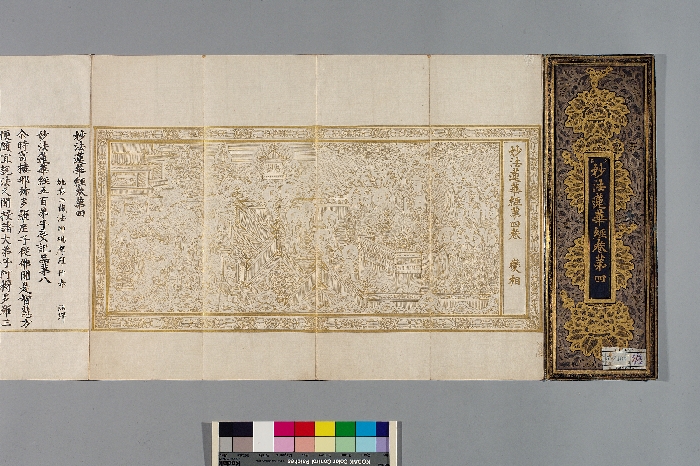 妙法蓮華經卷第四
妙法蓮華經第四卷 變相
妙法蓮華經卷第四
妙法蓮華經五百弟子受記品第八
尒時富樓那彌多羅尼子從佛聞是智慧方
便隨宜說法又聞授諸大弟子阿耨多羅三
KODAK Color Control Patches